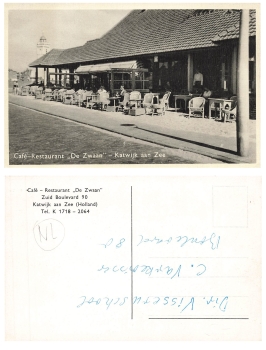 Café-Restaurant „De Zwaan" - Katwijk aan Zee
Café - Restaurant „De Zwaan"
Zuid Boulevard 90
Katwijk aan Zee (Holland)
Tel. K 1718 - 2064
NL
Dir. Visserijschool
C. Varkevisser
Boulevard 80